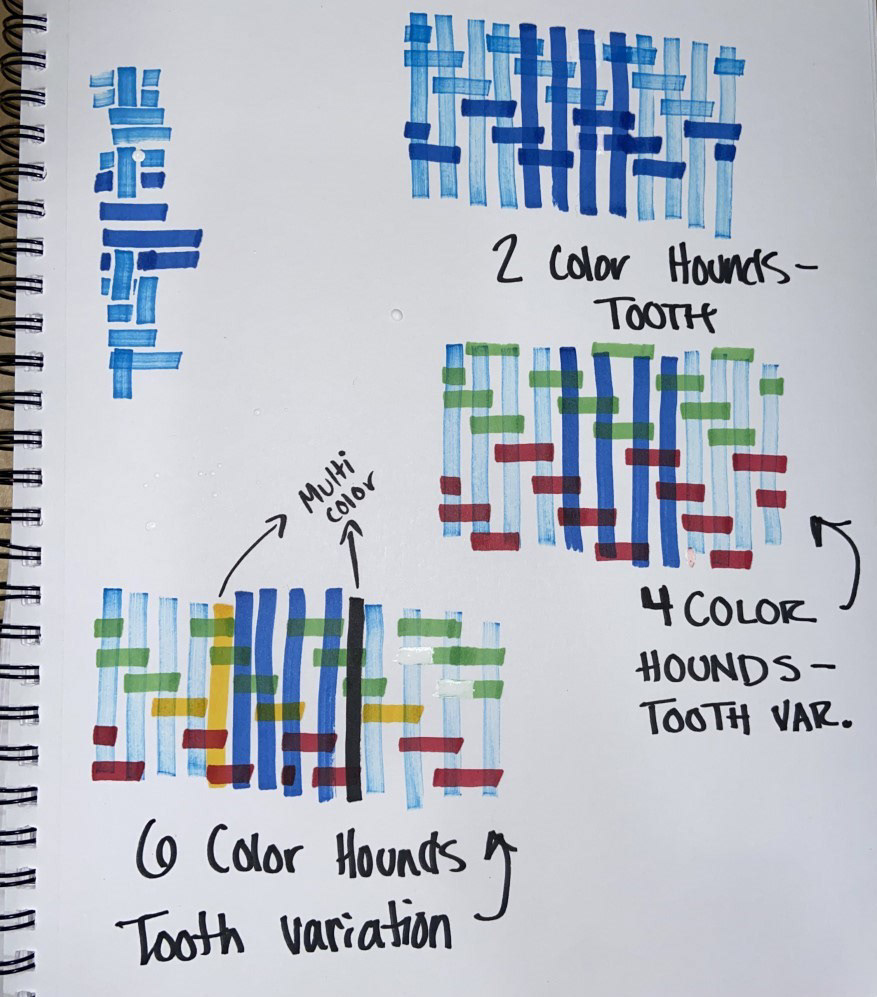 2 Color Hounds-
TOOTH
Multi
color
4 COLOR
HOUNDS-
TOOTH VAR.
6 Color Hounds
Tooth Variation